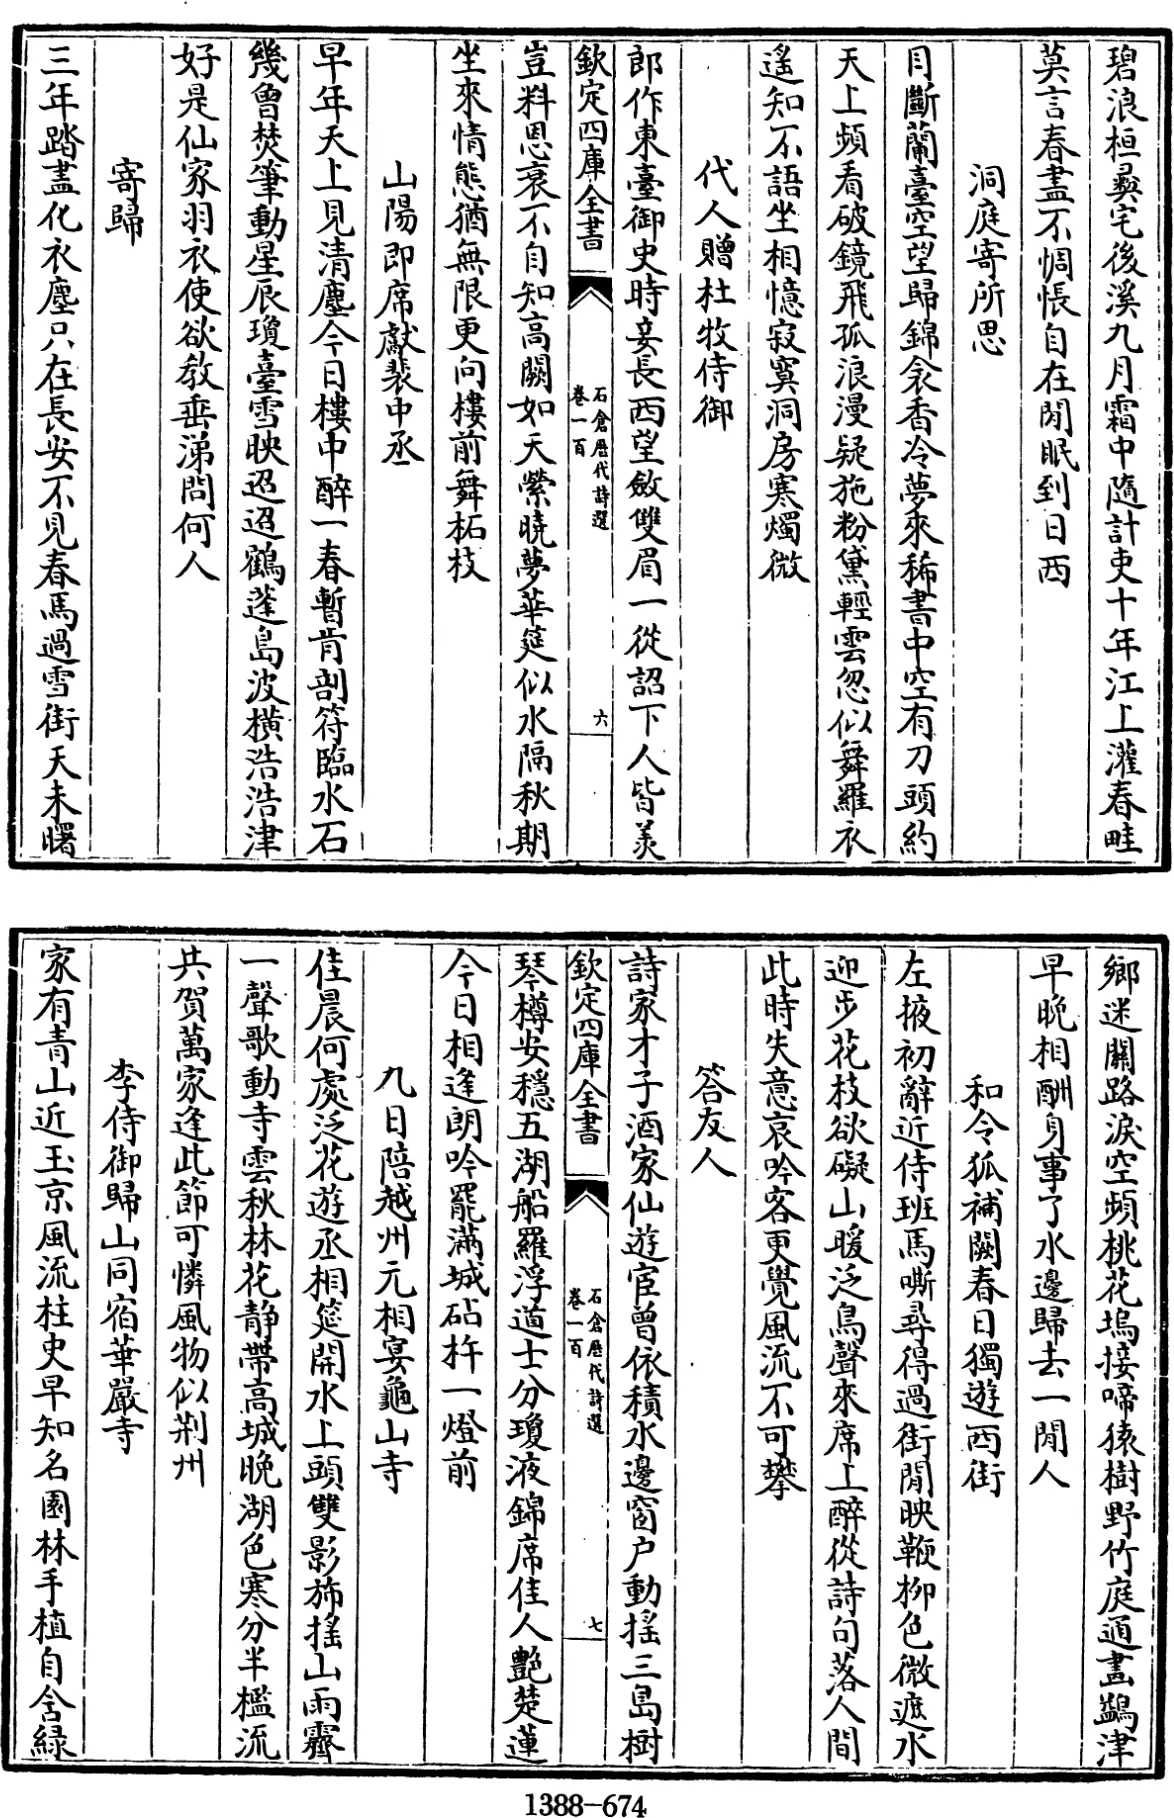 碧浪桓彛宅後溪九月霜中隨計吏十年江上灌春畦
莫言春盡不惆悵自在閑眠到日西
洞庭寄所思
目斷蘭臺空望歸錦衾香冷夢來稀書中空有刀頭約
天上頻看破鏡飛孤浪漫疑施粉黛輕雲忽似舞羅衣
遙知不語坐相憶寂寞洞房寒燭微
代人贈杜牧侍御
郎作東臺御史時妾長西望斂雙眉一從詔下人皆羨
欽定四庫全書
石倉歷代詩選
卷一百
六
豈料恩衰不自知高闕如天縈曉夢華筵似水隔秋期
坐來情態猶無限更向樓前舞柘枝
山陽即席獻裴中丞
早年天上見清塵今日樓中醉一春暫肯剖符臨水石
幾曾焚筆動星辰瓊臺雪映迢迢鶴蓬島波橫浩浩津
好是仙家羽衣使欲教垂涕問何人
寄歸
三年踏盡化衣塵只在長安不見春馬過雪街天未曙
鄉迷關路淚空頻桃花塢接啼猿樹野竹庭通畫鷁津
早晚相酬身事了水邊歸去一閒人
和令狐補闕春日獨遊西街
左掖初辭近侍班馬嘶尋得過街閒映鞭柳色微遮水
迎步花枝欲礙山暖泛鳥聲來席上醉從詩句落人間
此時失意哀吟客更覺風流不可攀
答友人
詩家才子酒家仙遊宦曾依積水邊窗户動搖三島樹
欽定四庫全書
石倉歷代詩選
卷一百
七
琴樽安穩五湖船羅浮道士分瓊液錦席佳人艷楚蓮
今日相逢朗吟罷滿城砧杵一燈前
九日陪越州元相宴龜山寺
佳晨何處泛花遊丞相筵開水上頭雙影旆搖山雨霽
一聲歌動寺雲秋林花静帶高城晚湖色寒分半檻流
共賀萬家逢此節可憐風物似荆州
李侍御歸山同宿華嚴寺
家有青山近玉京風流柱史早知名園林手植自含緑
1388-674